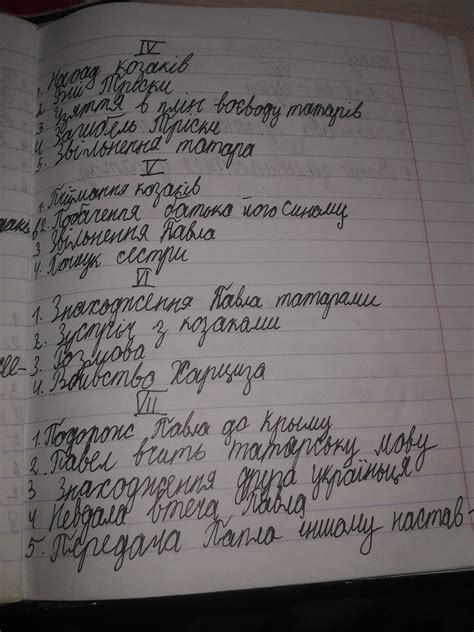 IV
1. Напад козаків
2. Тріски
3 Узяття в плін воєводу татарів
4 Загибель Тріски
5. Звільнення татара
V
1. Піймання козаків
2. Побачення батька його синому
3 Звільнення Павла
4. Пошук сестри
VI
1. Знаходження Павла татарами
2. Зустріч з козаками
3. Розмова
4. Вбивство Харциза
VII
1. Подорож Павла до Крыму
2. Павел вчить татарську мову
3 Знаходження друга українця
4 Невдала втеча Павла
5. Передача Павла іншому настав-